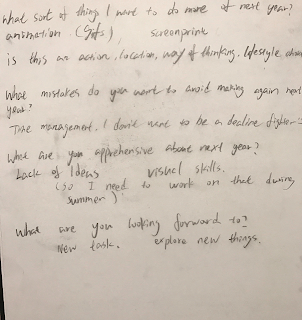 what sort of things I want to do more of next year?
animation (gifs) screenprint
is this an action, location, way of thinking, lifestyle
What mistakes do you want to avoid making again next
year?
Time management. I don't want to be a decline fighter
What are you apprehensive about next year?
Lack of Ideas visual skills.
(So I need to work on that during
summer)
What are you looking forward to?
New task. explore new things.